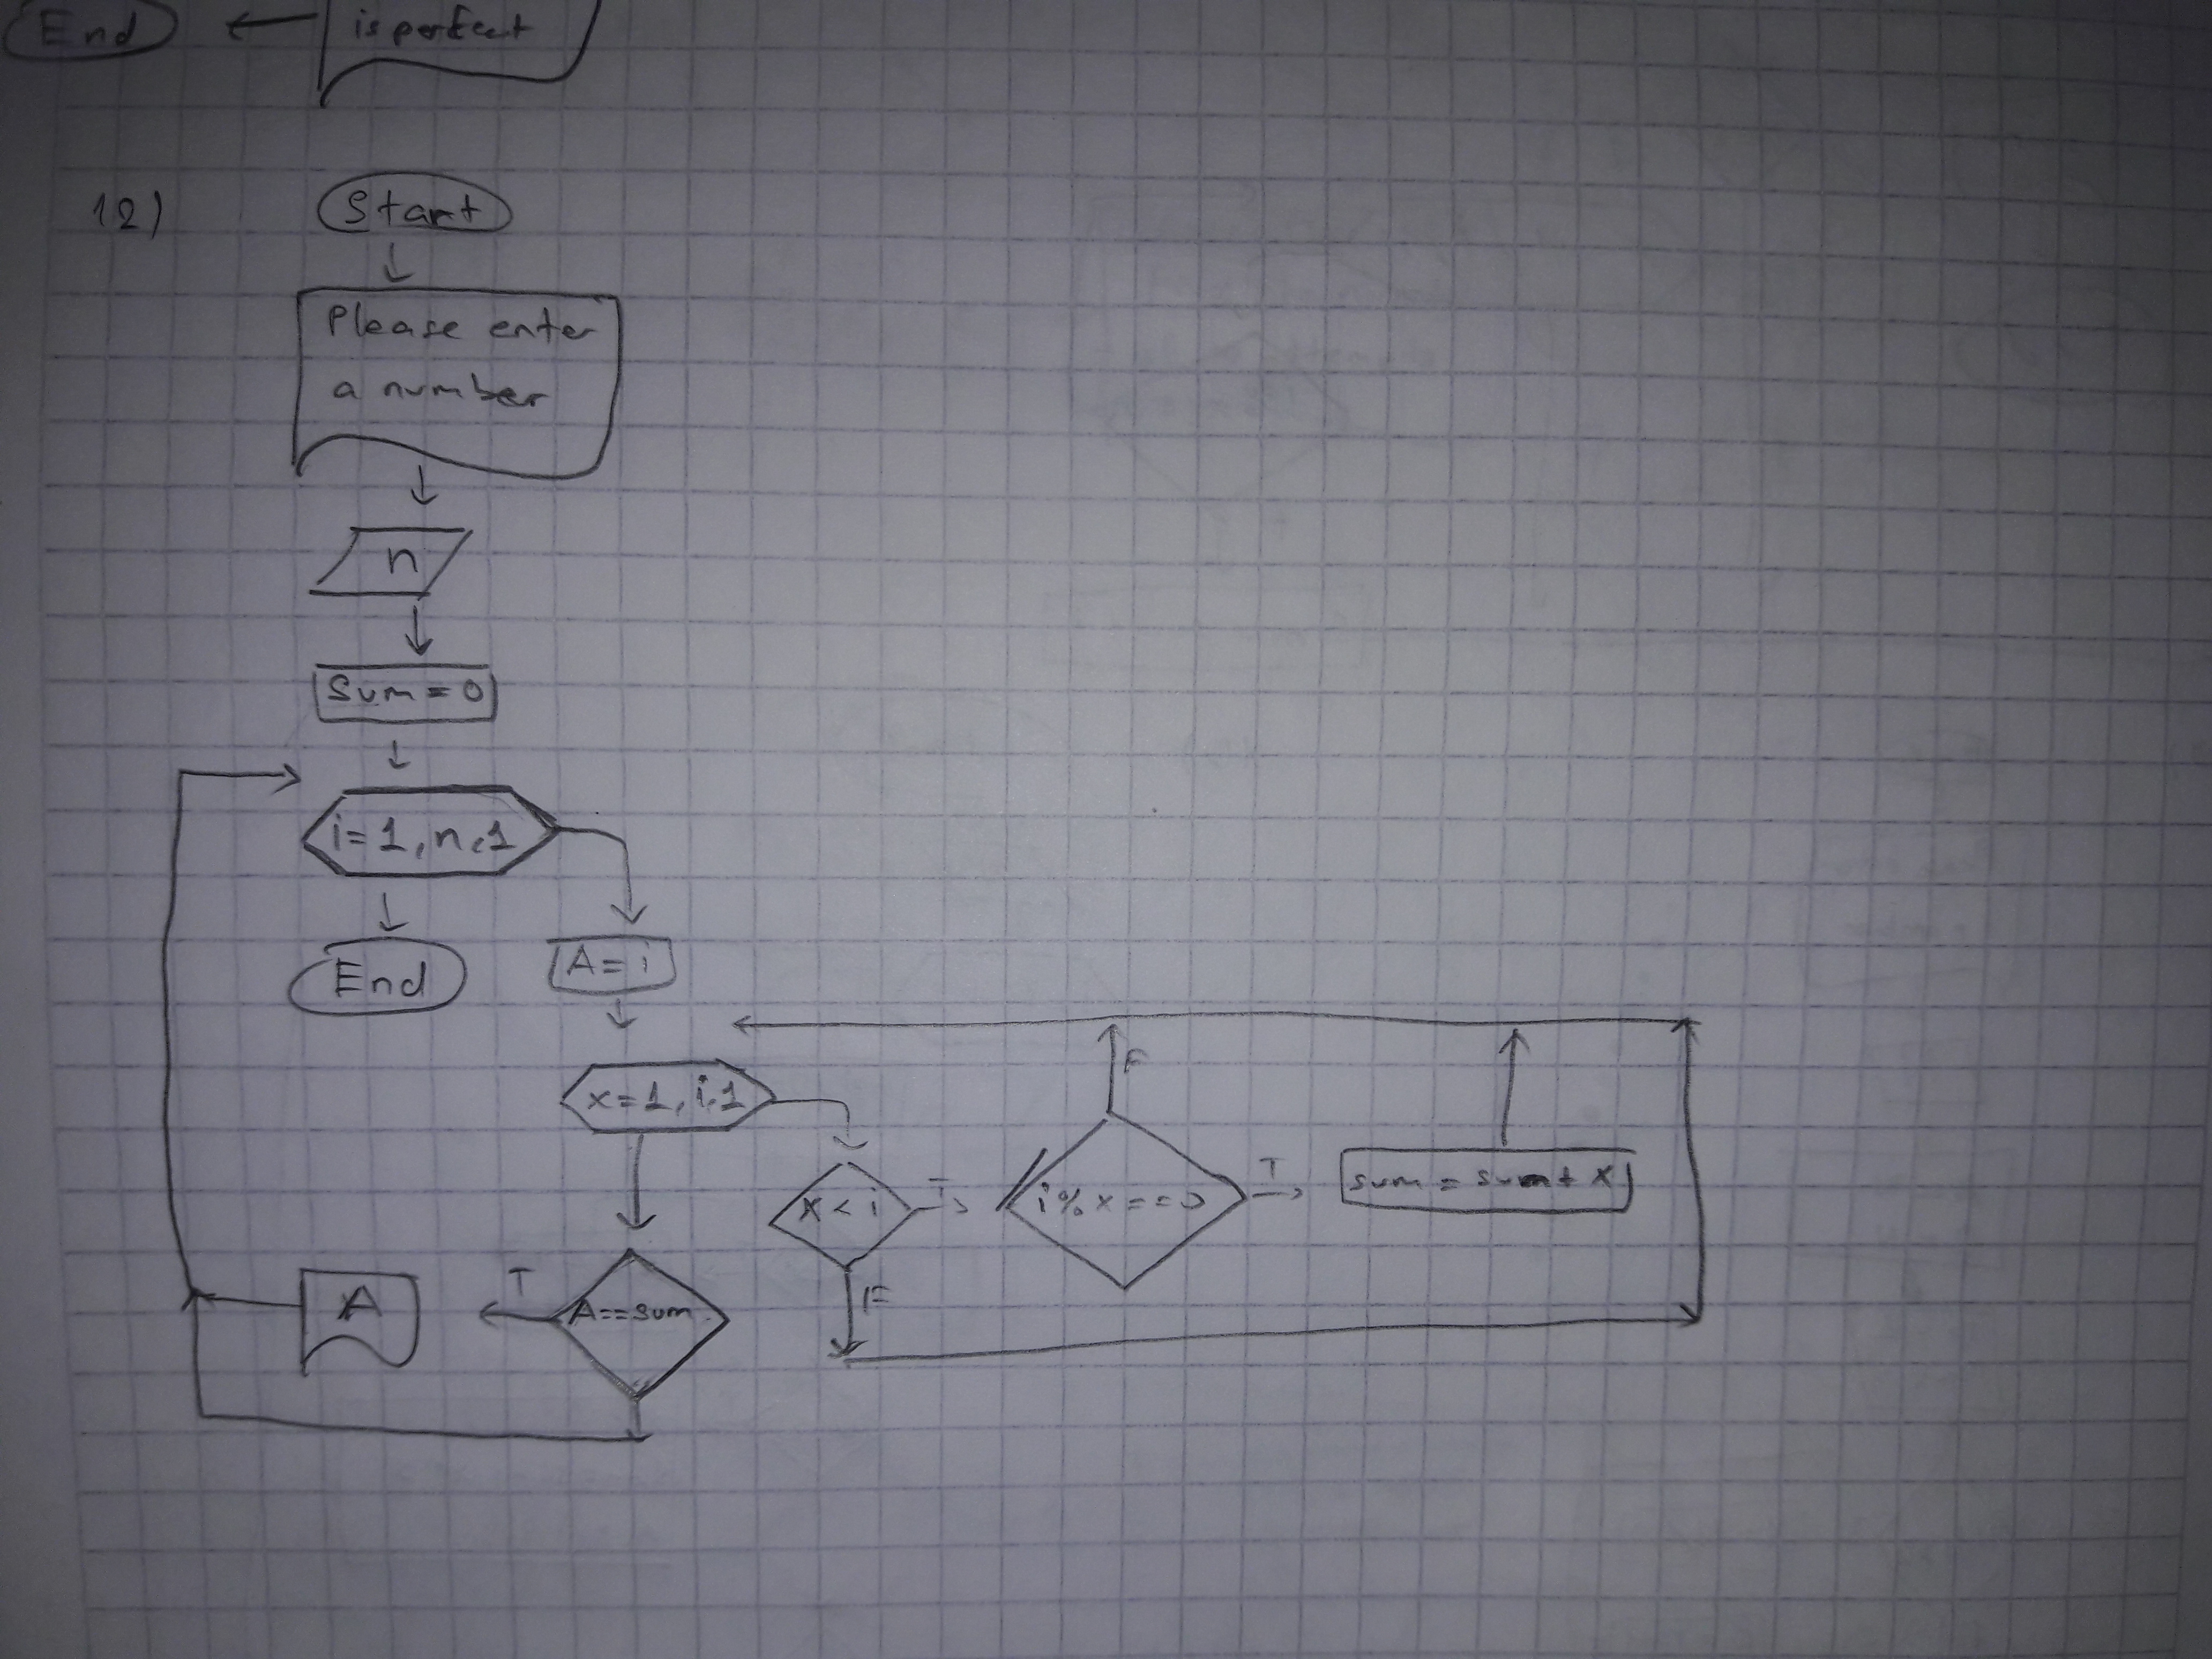 End
is perfect
12)
Start
Please enter
a number
n
Sum = 0
i=1,n,1
End
A= i
x=1,i,1
x < i
T
F
i%x==0
F
T
sum = sum + x
A==sum
T
A